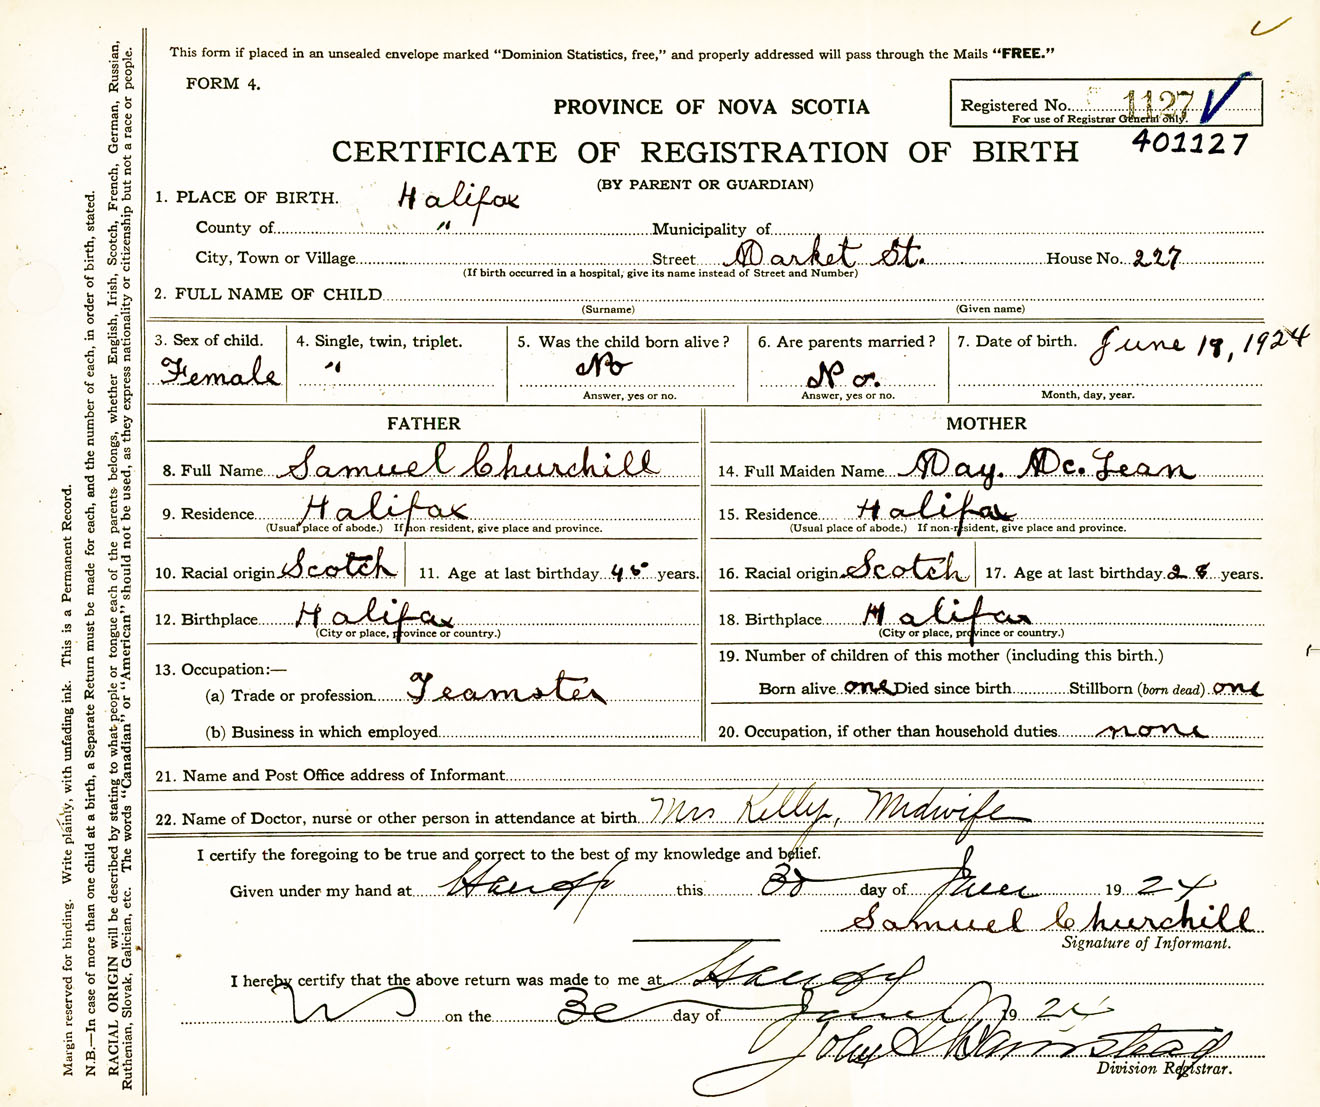 This form if placed in an unsealed envelope marked “Dominion Statistics, free,” and properly addressed will pass through the Mails “FREE.”
FORM 4.
PROVINCE OF NOVA SCOTIA
Registered No. 1127
For use of Registrar General only.
401127
CERTIFICATE OF REGISTRATION OF BIRTH
(BY PARENT OR GUARDIAN)
1. PLACE OF BIRTH. Halifax
County of " Municipality of
City, Town or Village Street Market St. House No. 227
(If birth occurred in a hospital, give its name instead of Street and Number)
2. FULL NAME OF CHILD
(Surname) (Given name)
3. Sex of child. Female
4. Single, twin, triplet. "
5. Was the child born alive? No
Answer, yes or no.
6. Are parents married? No.
Answer, yes or no.
7. Date of birth. June 1924
Month, day, year.
FATHER
8. Full Name Samuel Churchill
9. Residence Halifax
(Usual place of abode.) If non resident, give place and province.
10. Racial origin Scotch 11. Age at last birthday 45 years.
12. Birthplace Halifax
(City or place, province or country.)
13. Occupation:—
(a) Trade or profession Teamster
(b) Business in which employed
MOTHER
14. Full Maiden Name May. Mc.Lean
15. Residence Halifax
(Usual place of abode.) If non-resident, give place and province.
16. Racial origin Scotch 17. Age at last birthday 28 years.
18. Birthplace Halifax
(City or place, province or country.)
19. Number of children of this mother (including this birth.)
Born alive one Died since birth Stillborn (born dead) one
20. Occupation, if other than household duties none
21. Name and Post Office address of Informant
22. Name of Doctor, nurse or other person in attendance at birth Mrs Kelly, Midwife
I certify the foregoing to be true and correct to the best of my knowledge and belief.
Given under my hand at this 30 day of June 1924
Samuel Churchill
Signature of Informant.
I hereby certify that the above return was made to me at
on the 30 day of June 1924
John
Division Registrar.
Margin reserved for binding. Write plainly, with unfading ink. This is a Permanent Record.
N.B.—In case of more than one child at a birth, a Separate Return must be made for each, and the number of each, in order of birth, stated.
RACIAL ORIGIN will be described by stating to what people or tongue each of the parents belongs, whether English, Irish, Scotch, French, German, Russian,
Ruthenian, Slovak, Galician, etc. The words “Canadian” or “American” should not be used, as they express nationality or citizenship but not a race or people.